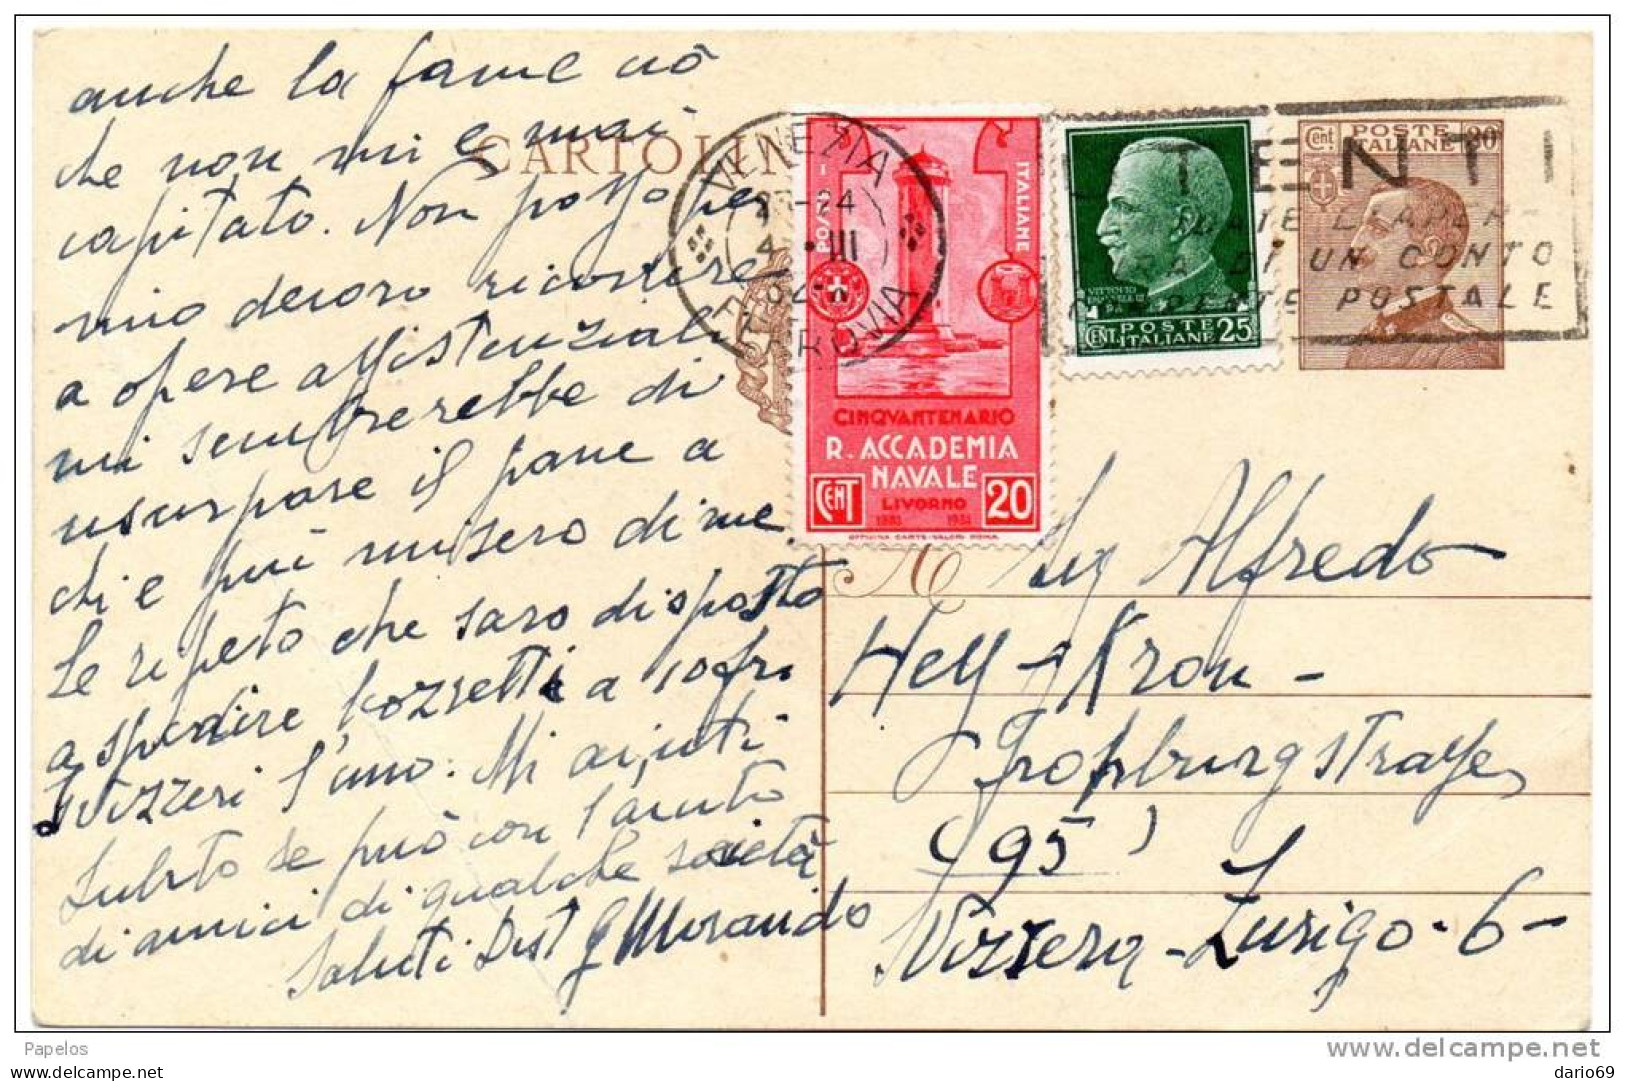 anche la fame ciò
che non mi è mai
capitato. Non posso per
mio decoro ricorrere
a opere assistenziali
mi sembrerebbe di
usurpare il pane a
chi è più misero di me
Le ripeto che sarò disposto
a spedire bozzetti a 10 fr.
svizzeri l'uno. Mi aiuti
subito se può con l'aiuto
di amici di qualche società
Saluti Dist G Morando
CARTOLIN
VENEZIA
23-24
III
FERROVIA
POSTE
ITALIANE
CINQVANTENARIO
R. ACCADEMIA
NAVALE
CENT LIVORNO 20
1881 1931
OFFICINA CARTE-VALORI ROMA
VITTORIO
CENT. POSTE ITALIANE 25
Cent. POSTE ITALIANE 30
UTENTI
DI UN CONTO
CORRENTE POSTALE
Sig Alfredo
Hely - Kron -
strasse
(95)
Svizzera - Zurigo - 6 -
Papelos
www.delcampe.net
dario69